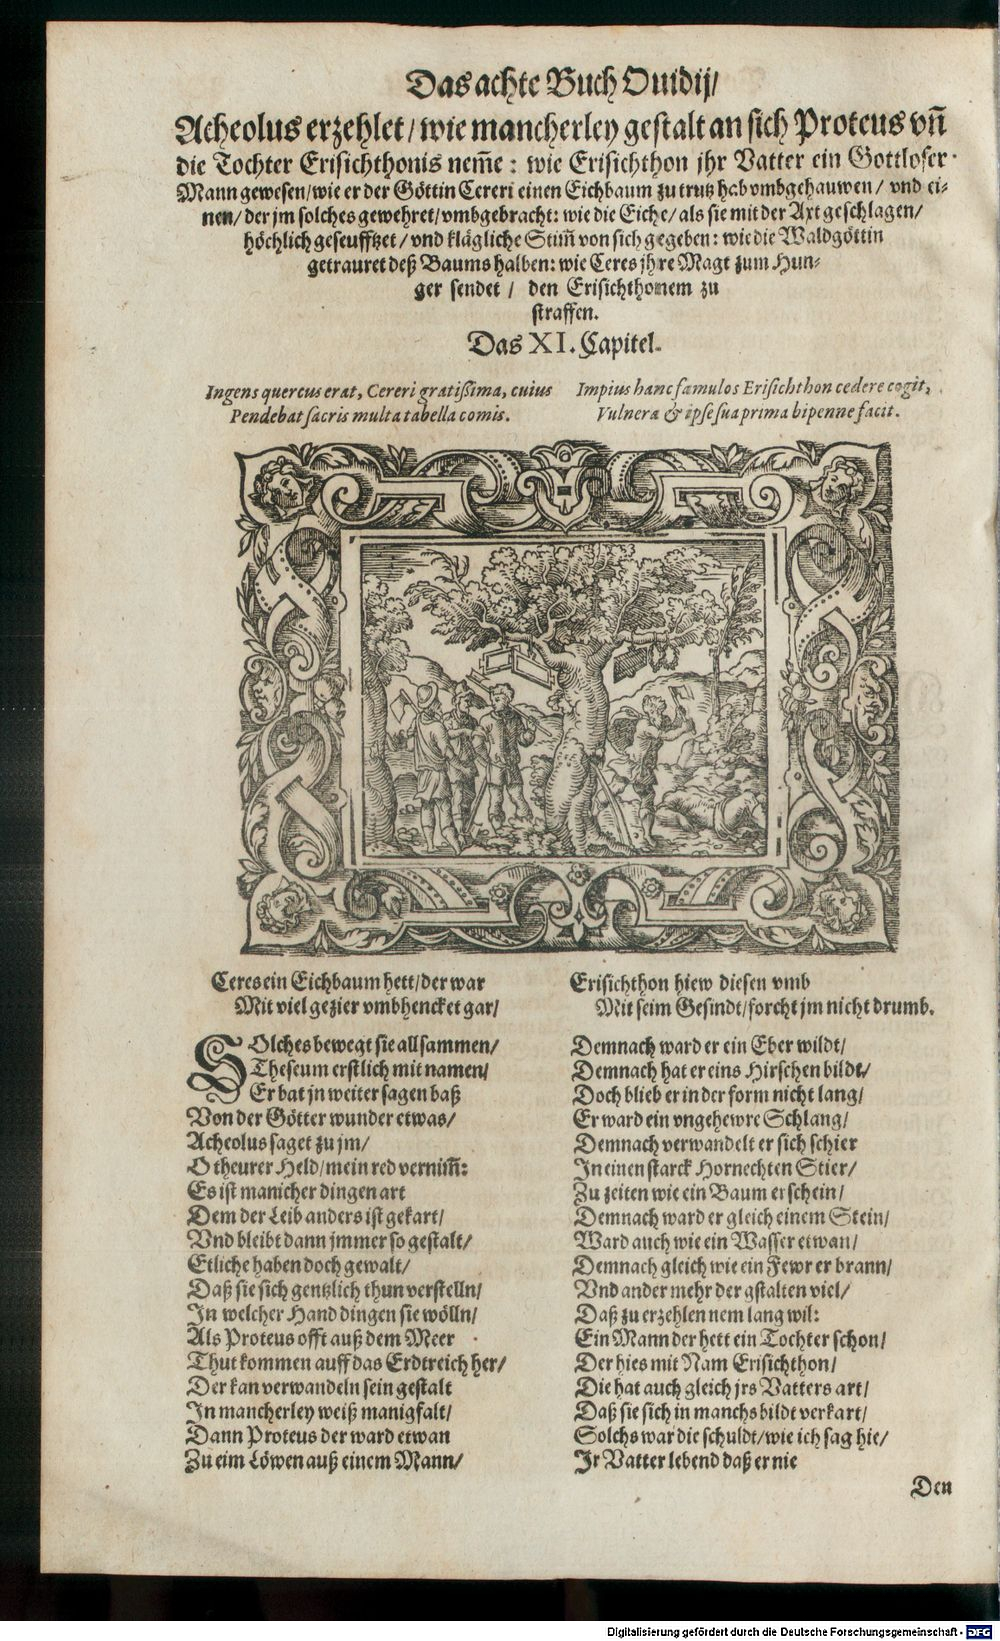 Das achte Buch Ouidij/
Acheolus erzehlet/ wie mancherley gestalt an sich Proteus vñ
die Tochter Erisichthonis nem̃e: wie Erisichthon jhr Vatter ein Gottloser
Mann gewesen/ wie er der Göttin Cereri einen Eichbaum zu trutz hab vmbgehauwen/ vnd ei-
nen/ der jm solches gewehret/ vmbgebracht: wie die Eiche/ als sie mit der Axt geschlagen/
höchlich geseufftzet/ vnd klägliche Stim̃ von sich gegeben: wie die Waldgöttin
getrauret deß Baums halben: wie Ceres jhre Magt zum Hun-
ger sendet/ den Erisichthonem zu
straffen.
Das XI. Capitel.
Ingens quercus erat, Cereri gratißima, cuius
Pendebat sacris multa tabella comis.
Impius hanc famulos Erisichthon cedere cogit,
Vulnera & ipse sua prima bipenne facit.
Ceres ein Eichbaum hett/ der war
Mit viel gezier vmbhencket gar/
Erisichthon hiew diesen vmb
Mit seim Gesindt/ forcht jm nicht drumb.
SOlches bewegt sie all sammen/
Theseum erstlich mit namen/
Er bat jn weiter sagen baß
Von der Götter wunder etwas/
Acheolus saget zu jm/
O theurer Held/ mein red vernim̃:
Es ist manicher dingen art
Dem der Leib anders ist gekart/
Vnd bleibt dann jmmer so gestalt/
Etliche haben doch gewalt/
Daß sie sich gentzlich thun verstelln/
In welcher Hand dingen sie wölln/
Als Proteus offt auß dem Meer
Thut kommen auff das Erdtreich her/
Der kan verwandeln sein gestalt
In mancherley weiß manigfalt/
Dann Proteus der ward etwan
Zu eim Löwen auß einem Mann/
Demnach ward er ein Eber wildt/
Demnach hat er eins Hirschen bildt/
Doch blieb er in der form nicht lang/
Er ward ein vngehewre Schlang/
Demnach verwandelt er sich schier
In einen starck Hornechten Stier/
Zu zeiten wie ein Baum erschein/
Demnach ward er gleich einem Stein/
Ward auch wie ein Wasser etwan/
Demnach gleich wie ein Fewr er brann/
Vnd ander mehr der gstalten viel/
Daß zu erzehlen nem lang wil:
Ein Mann der hett ein Tochter schon/
Der hies mit Nam Erisichthon/
Die hat auch gleich jrs Vatters art/
Daß sie sich in manchs bildt verkart/
Solchs war die schuldt/ wie ich sag hie/
Ir Vatter lebend daß er nie
Den
Digitalisierung gefördert durch die Deutsche Forschungsgemeinschaft - DFG